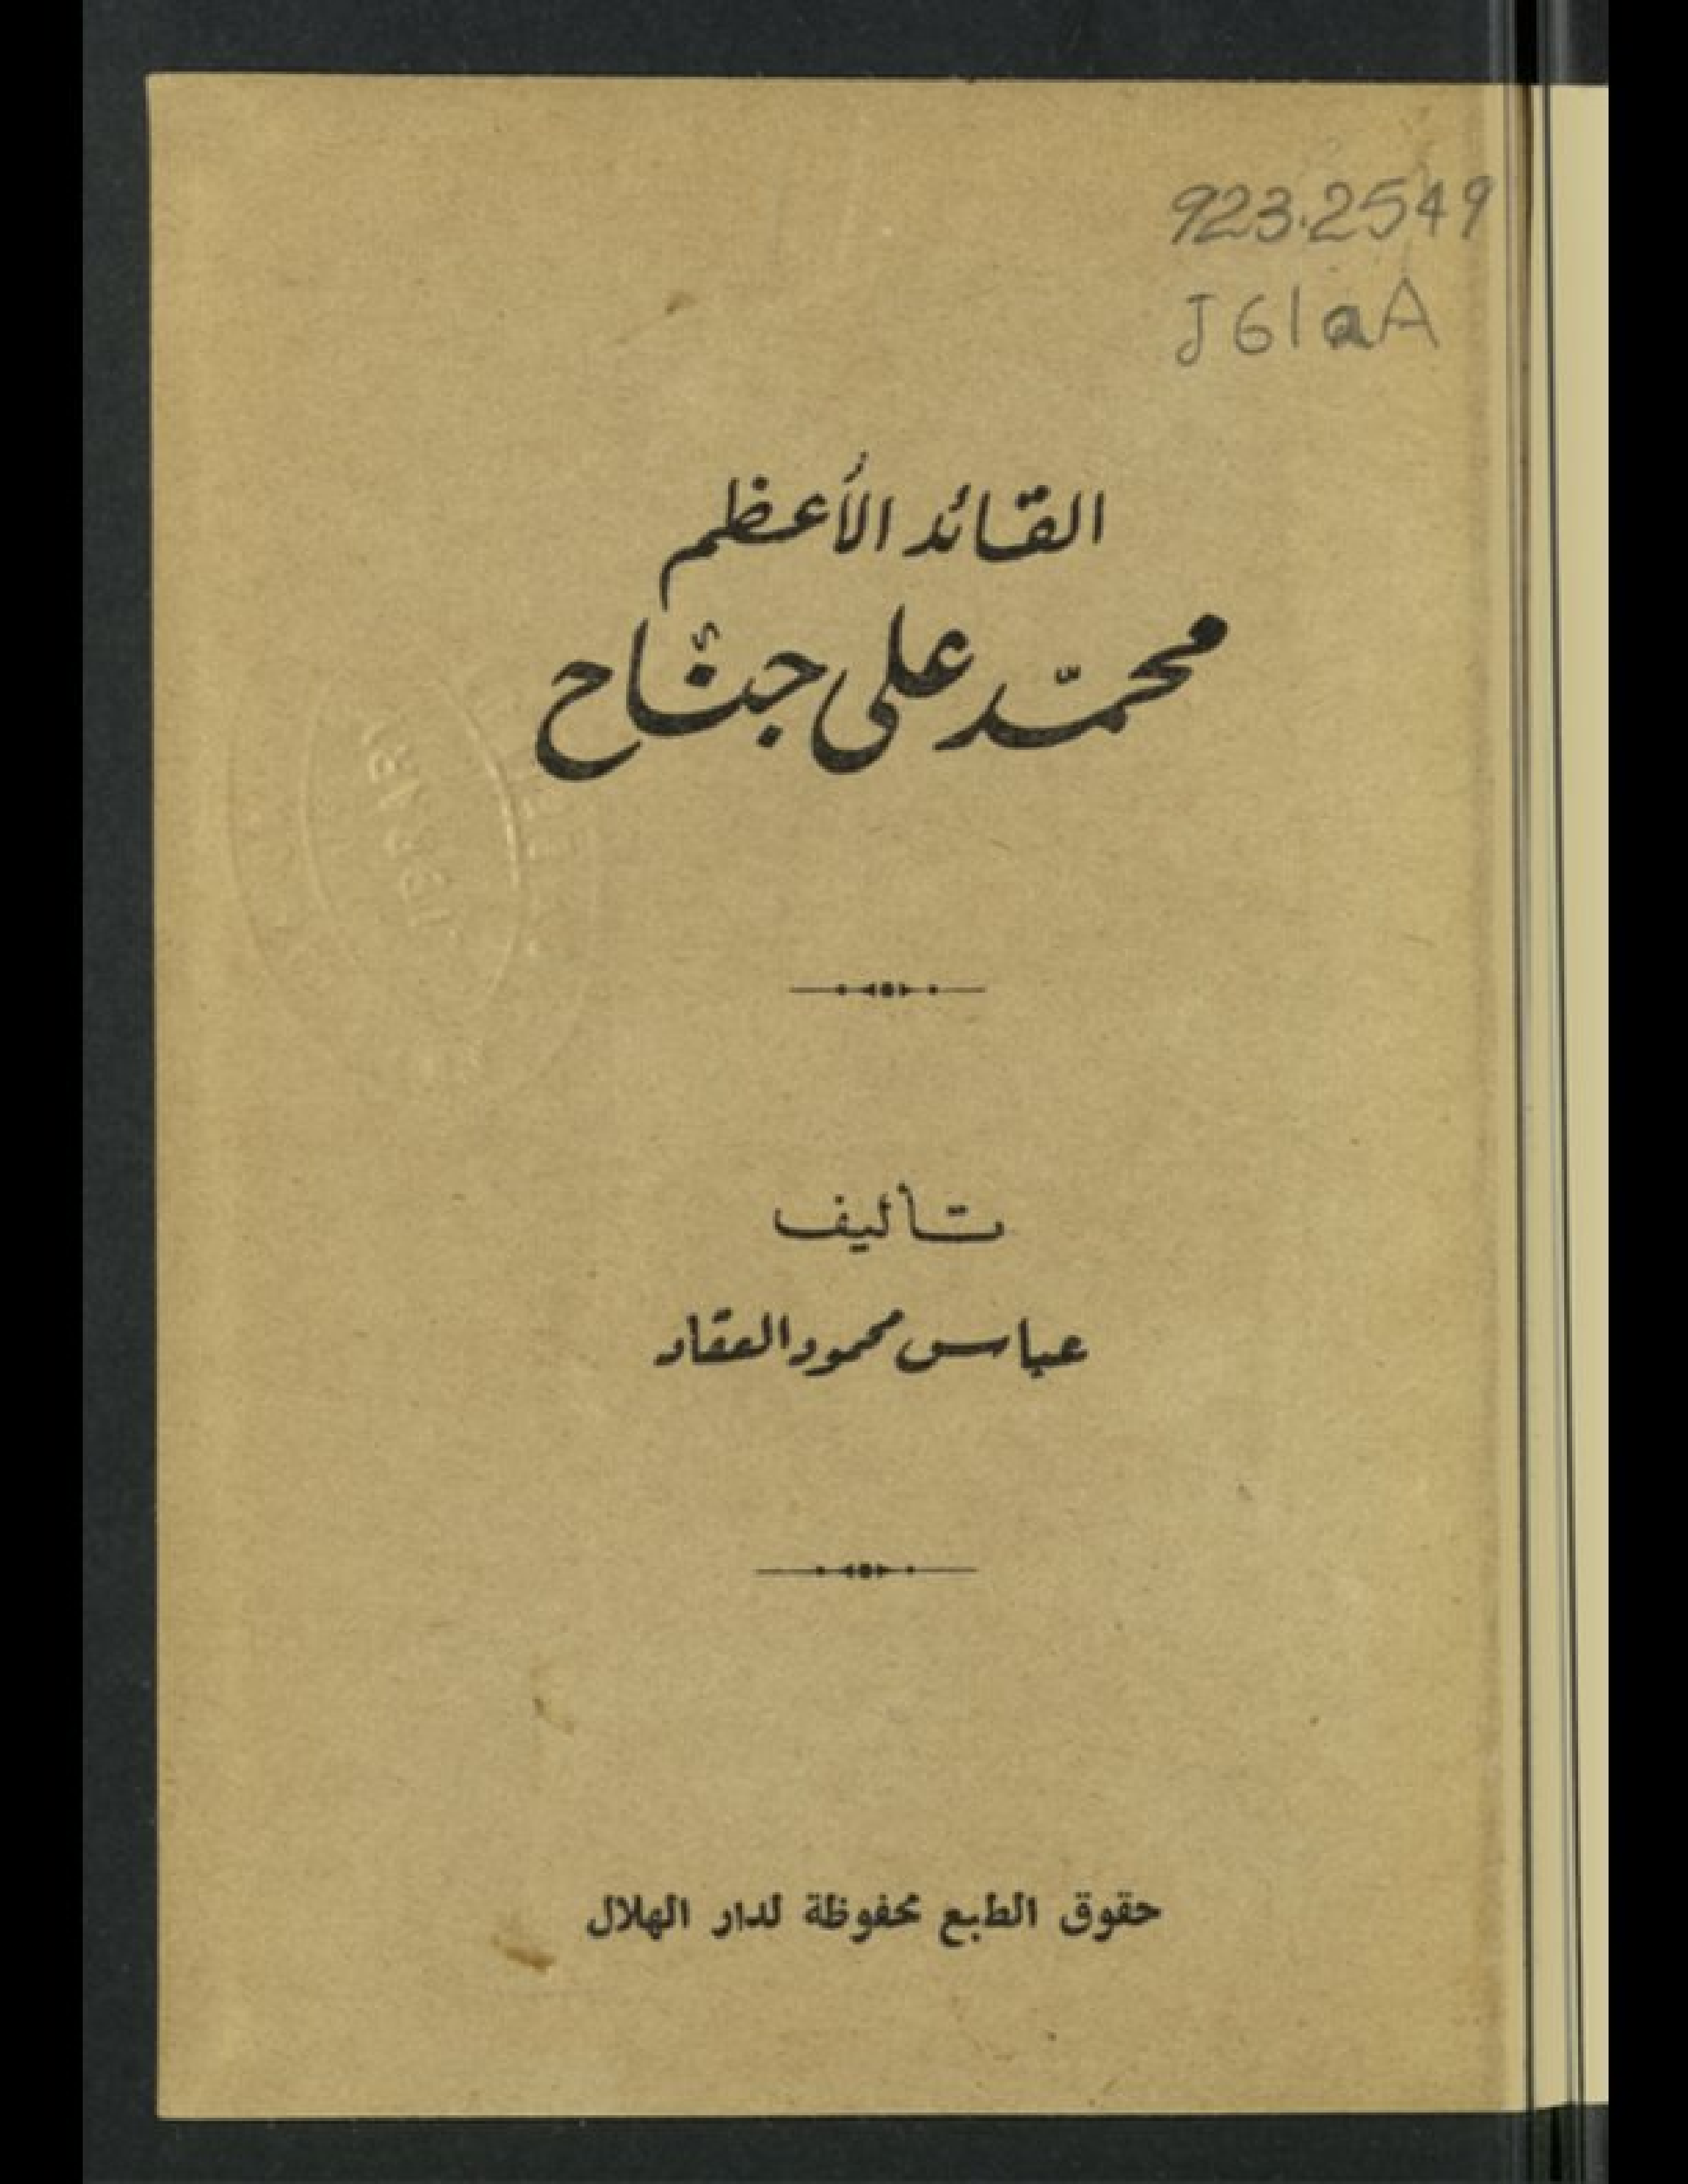 923.2549
J61aA
القائد الأعظم
محمّد على جناح
تأليف
عباس محمود العقاد
حقوق الطبع محفوظة لدار الهلال